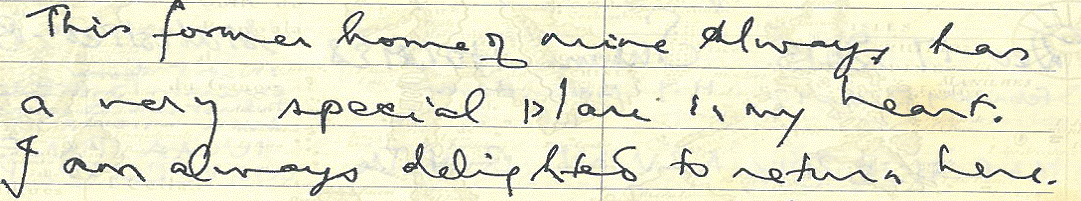 This former home of mine Always has
a very special place in my heart.
I am always delighted to return here.